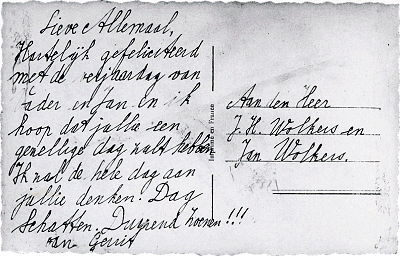 Lieve Allemaal,
Hartelijk gefeliciteerd
met de verjaardag van
Vader en Jan. En ik
hoop dat jullie een
gezellige dag zult hebben
Ik zal de hele dag aan
jullie denken. Dag
Schatten. Duizend zoenen!!!
van Gerrit
Aan den Heer
J. H. Wolkers en
Jan Wolkers.